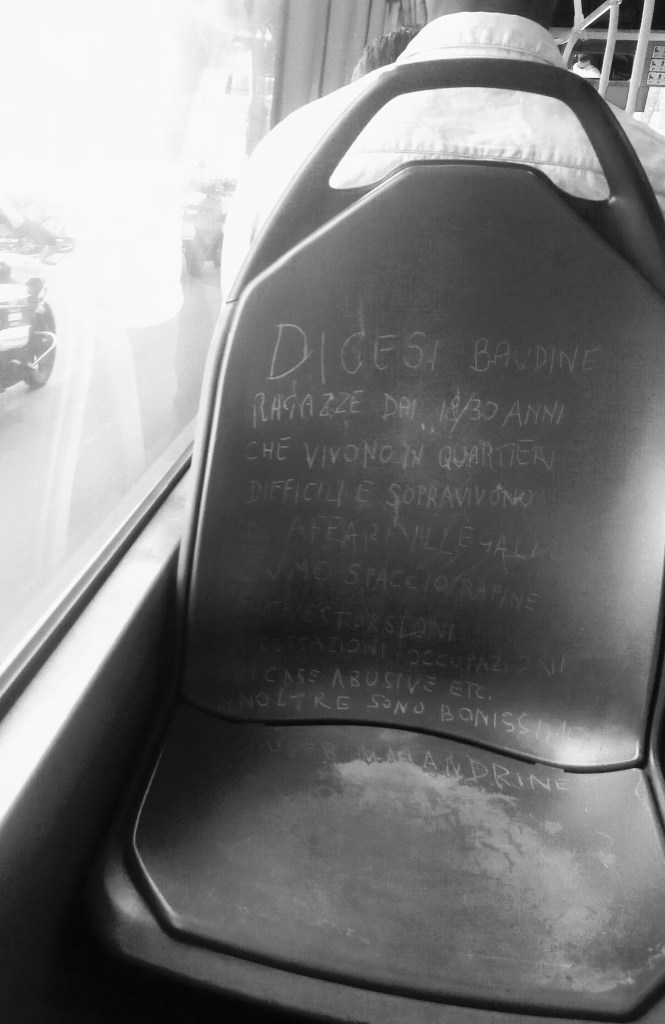 DICESI BAUDINE
RAGAZZE DAI 18/30 ANNI
CHE VIVONO IN QUARTIERI
DIFFICILI E SOPRAVIVONO
DI AFFARI ILLEGALI
COME SPACCIO/RAPINE
ESTORSIONI
OCCUPAZIONI
CASE ABUSIVE ETC.
INOLTRE SONO BONISSIME
MALANDRINE